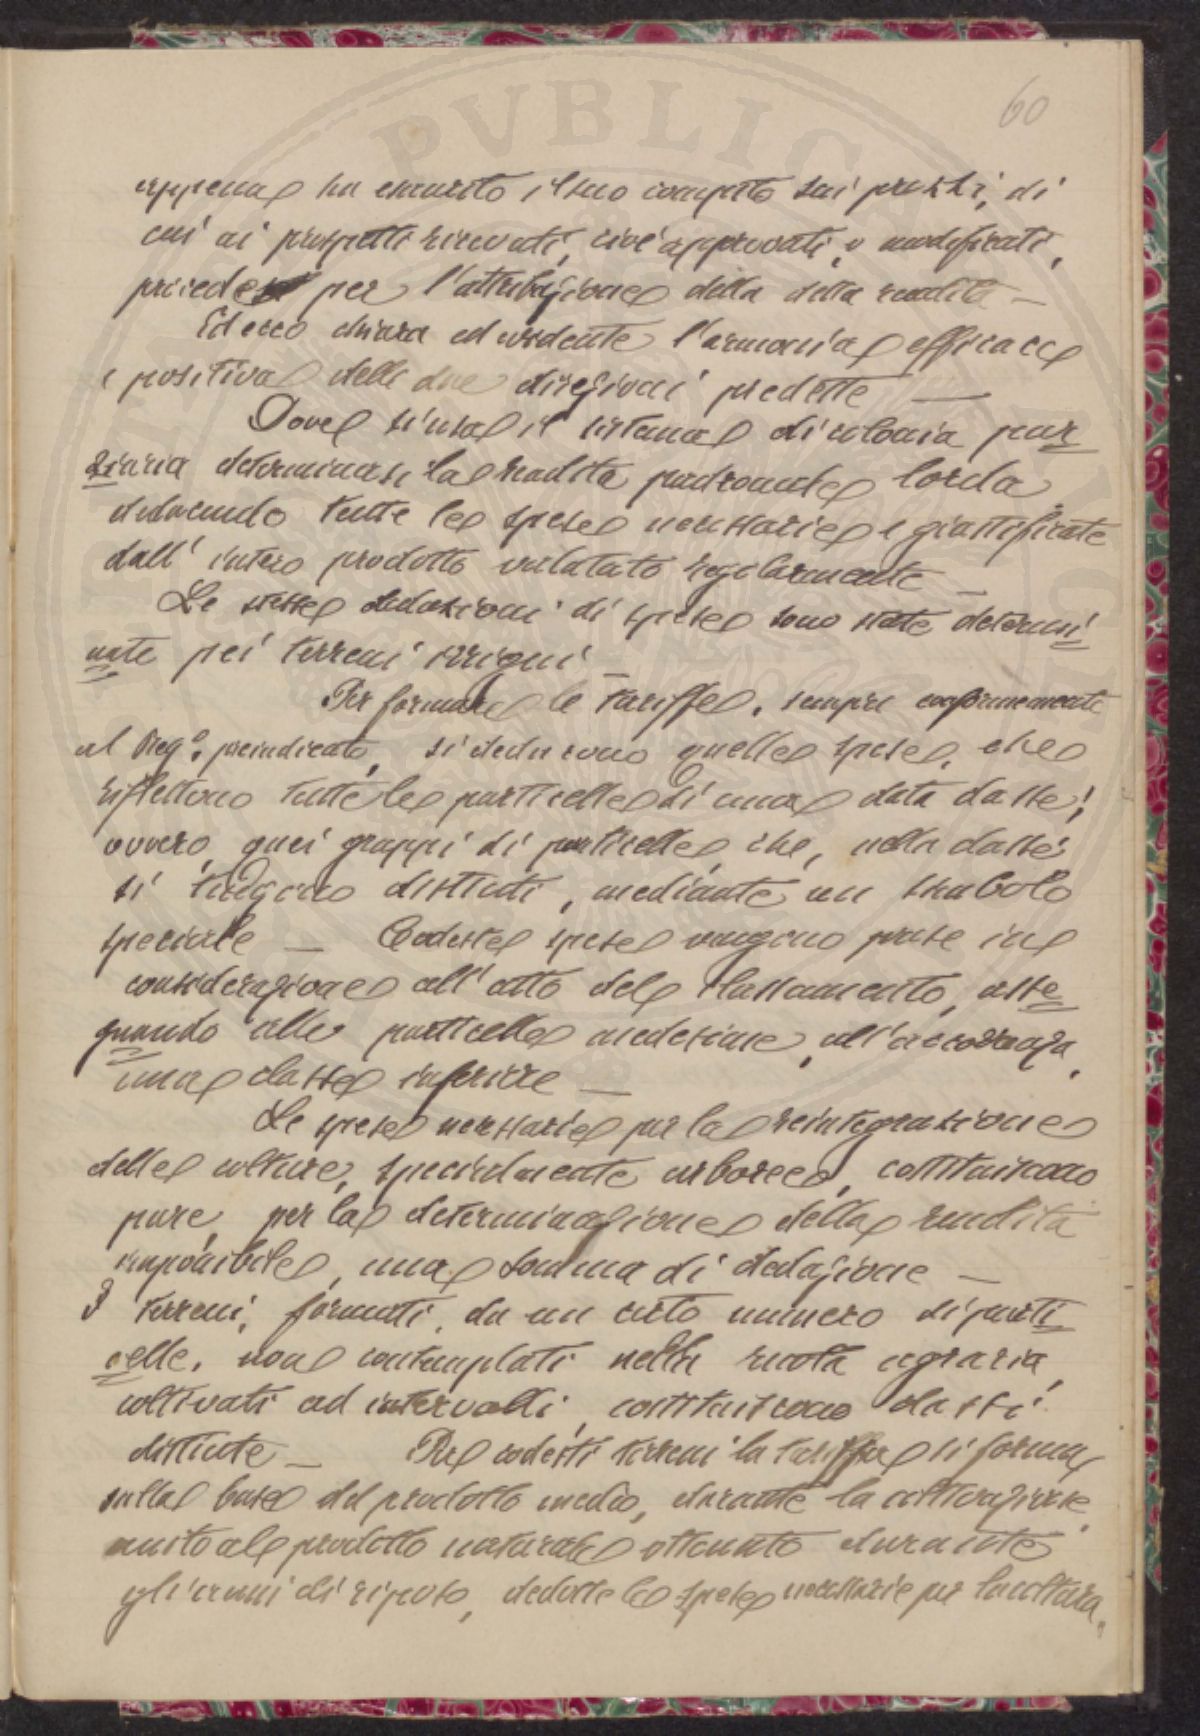 60
appena ha esaurito il suo compito sui prezzi, di
cui ai prospetti ricevuti, cioè approvati, o modificati,
procede per l'attribuzione della detta rendita —
Ed ecco chiara ed evidente l'armonia efficace
e positiva delle due direzioni predette —
Dove si usa il sistema di colonia par
ziaria determinasi la rendita padronale lorda
deducendo tutte le spese necessarie e giustificate
dall'intero prodotto valutato regolarmente —
Le stesse deduzioni di spese sono state determi
nate pei terreni irrigui —
Per formare le tariffe, sempre conformemente
al Reg.º preindicato, si deducono quelle spese, che
riflettono tutte le particelle di una data classe;
ovvero, quei gruppi di particelle, che, nella classe
si tengono distinti, mediante un simbolo
speciale — Codeste spese vengono prese in
considerazione all'atto del classamento, asse
gnando alle particelle medesime, all'accorrenza,
una classe inferiore —
Le spese necessarie per la reintegrazione
delle colture, specialmente arboree, costituiscono
pure, per la determinazione della rendita
imponibile, una somma di deduzione —
I terreni, formati da un certo numero di parti
celle, non contemplati nella ruota agraria,
coltivati ad intervalli, costituiscono classi
distinte — Per codesti terreni la tariffa si forma
sulla base del prodotto medio, durante la coltivazione,
unito al prodotto naturale ottenuto durante
gli anni di riposo, dedotte le spese necessarie per la coltura.
PVBLICA